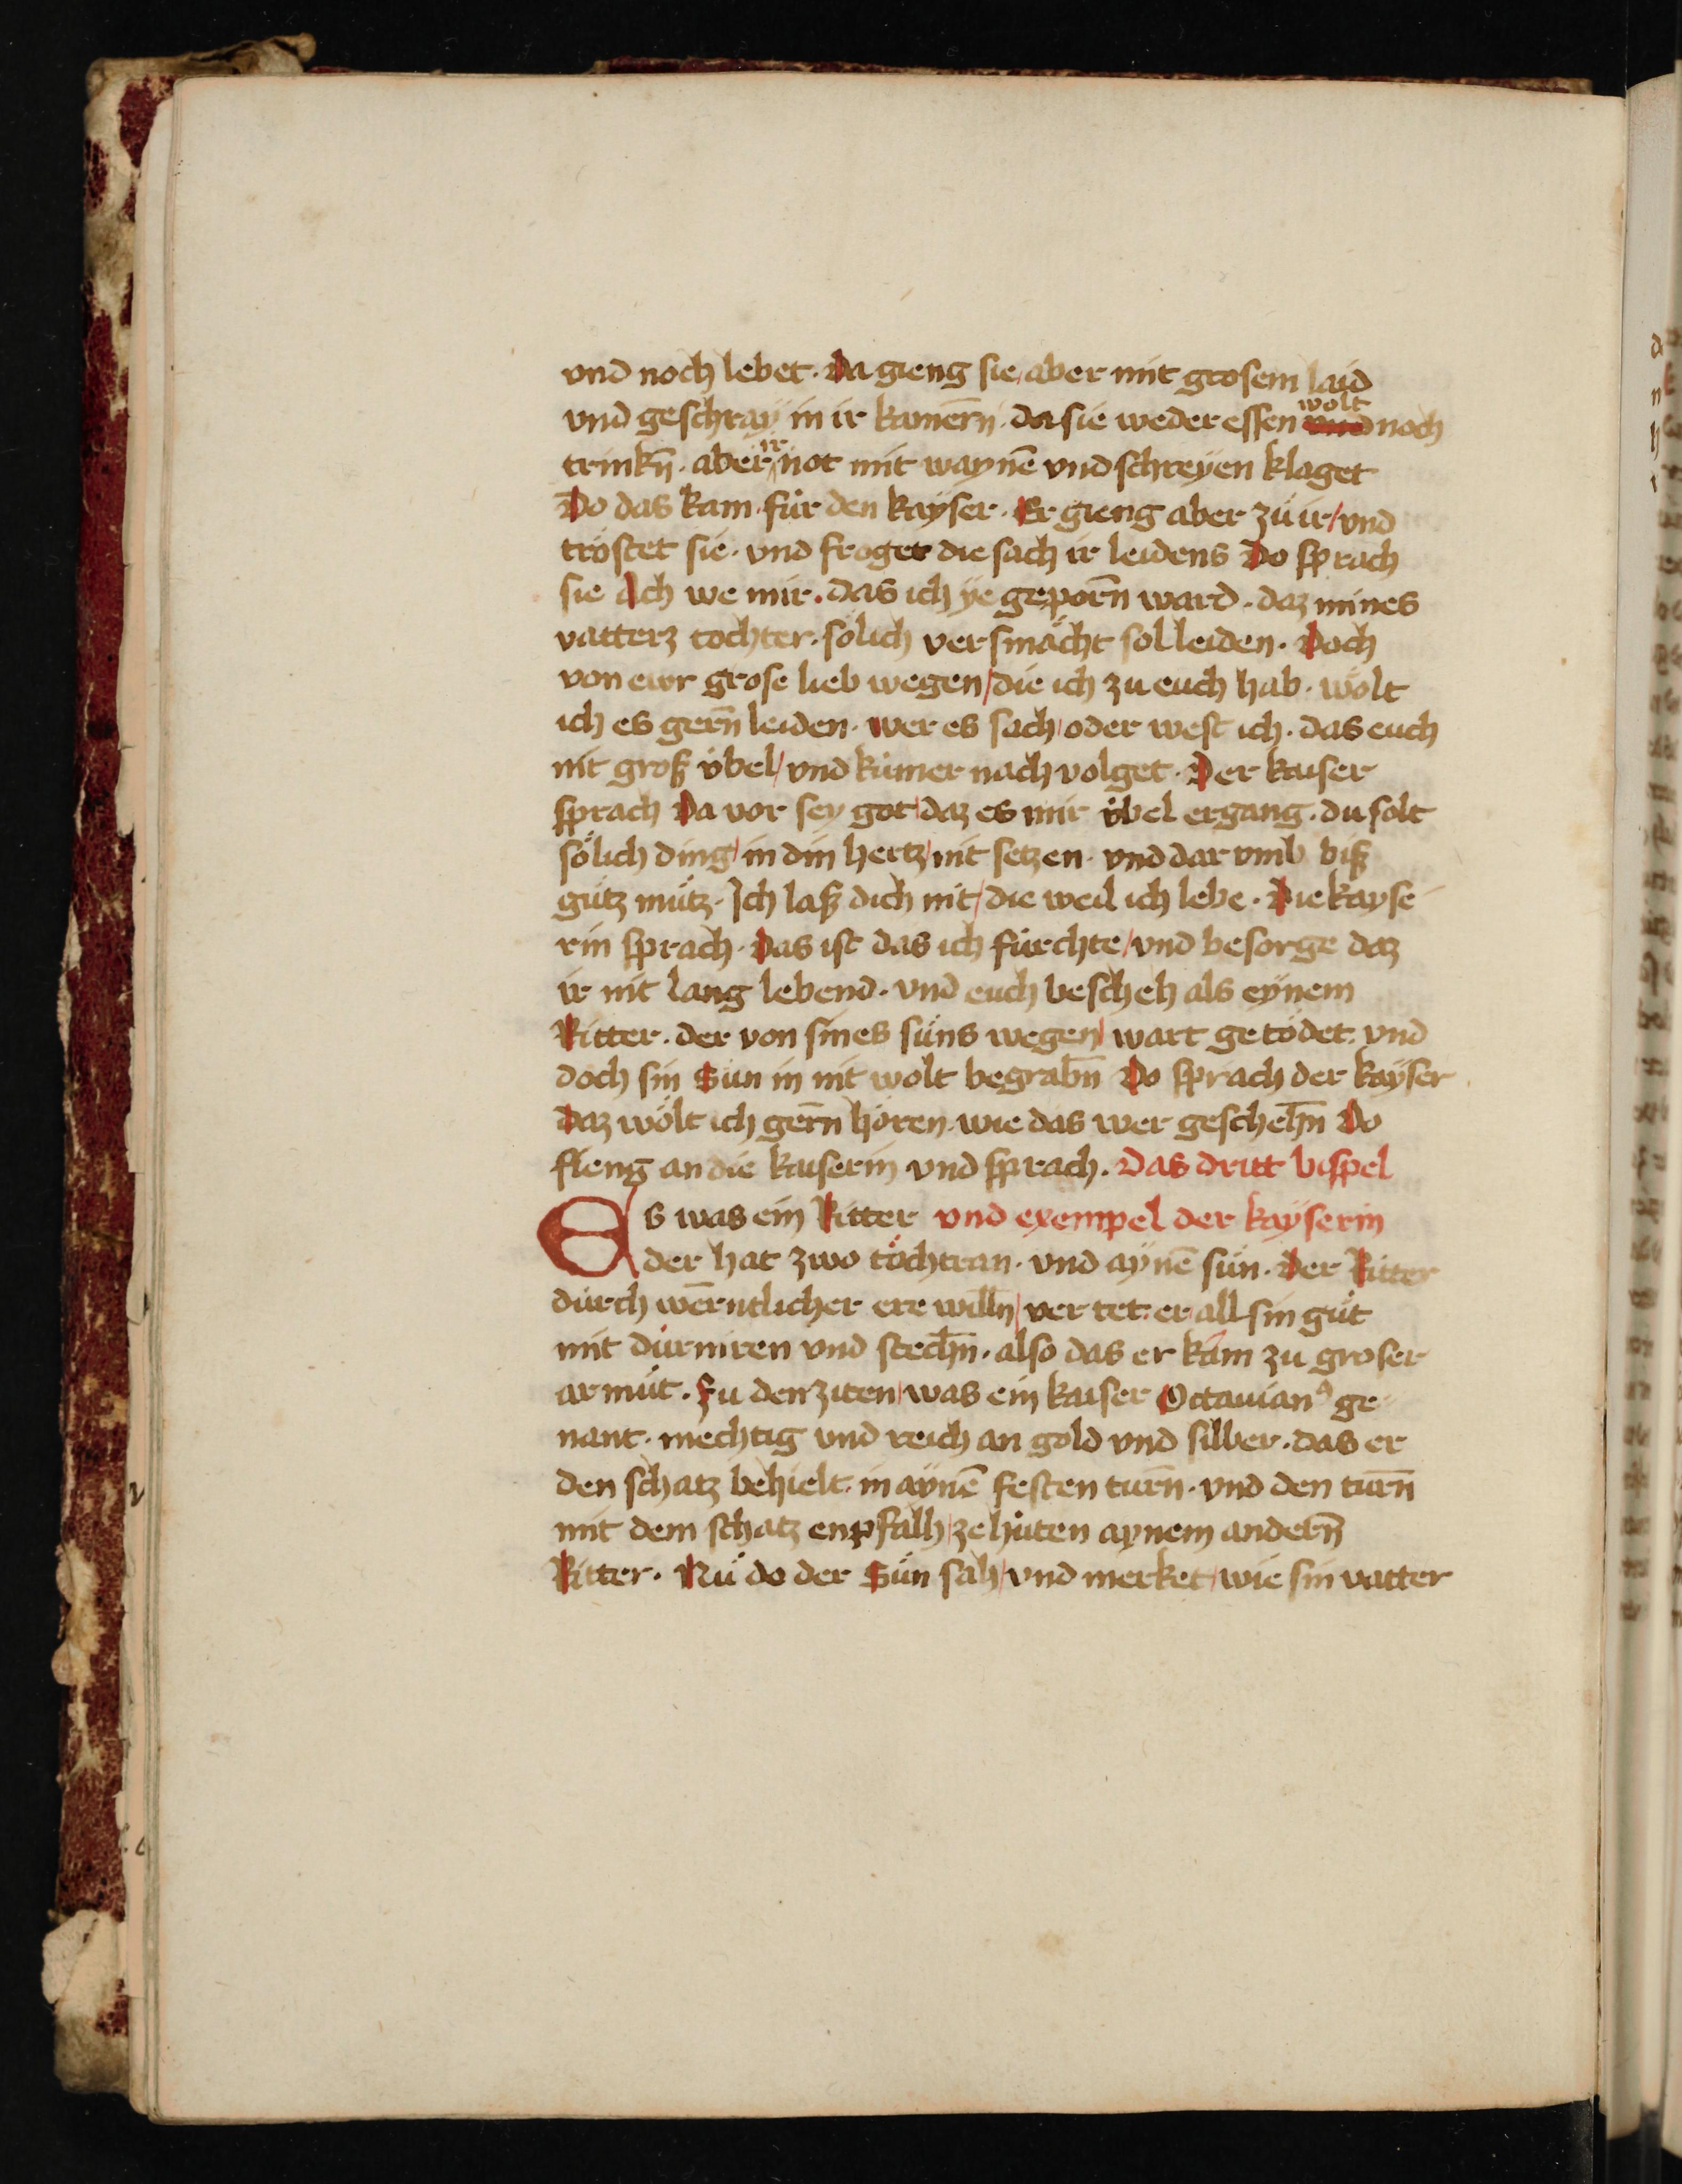 vnd noch lebet. Da gieng sie aber mit grosem laid
vnd geschray in ir kamern̄. da sie weder essen wolt noch
trinkn̄. aber ir not mit waynē vnd schreyen klaget
Do das kam für den kaÿser. Er gieng aber zů ir / vnd
tröstet sie. vnd froget die sach ir leidens Do sprach
sie Ach we mir. das ich ÿe geporn̄ ward. daz mines
vatterz tochter. sölich versmächt sol leiden. Doch
von ewr grose lieb wegen / die ich zu euch hab. wölt
ich es gern̄ leiden. wer es sach / oder west ich. das euch
nit groß v̈bel / vnd kümer nach volget. Der kaiser
sprach Da vor sey got / daz es mir v̈bel ergang. du solt
sölich ding / in din hertz / nit setzen. vnd dar vmb biß
gůtz můtz. Ich laß dich nit / die weil ich lebe. Die kayse
rin sprach. Das ist das ich fürchte / vnd besorge daz
ir nit lang lebend. vnd euch bescheh als eÿnem
Ritter. der von sines suns wegen / wart getödet. vnd
doch sin Sun in nit wolt begrabn̄ Do sprach der kaÿser
Daz wölt ich gern̄ hören. wie das wer geschehn̄ Do
fieng an die kaiserin vnd sprach. Das dritt bispel
Es was ein Ritter vnd exempel der kaÿserin
der hat zwo töchtran. vnd aÿnē sun. Der Ritter
durch wērntlicher ere willn̄ / ver tet er all sin gůt
mit durniren vnd stechn̄. also das er kam zu groser
armůt. Zu den ziten / was ein kaiser Octauianꝰ ge
nant. mechtig vnd reich an gold vnd silber. das er
den schatz behielt. in aynē festen turn̄. vnd den turn̄
mit dem schatz enpfalh / ze hůten aynem andern̄
Ritter. Nu do der Sun sah / vnd merket / wie sin vatter